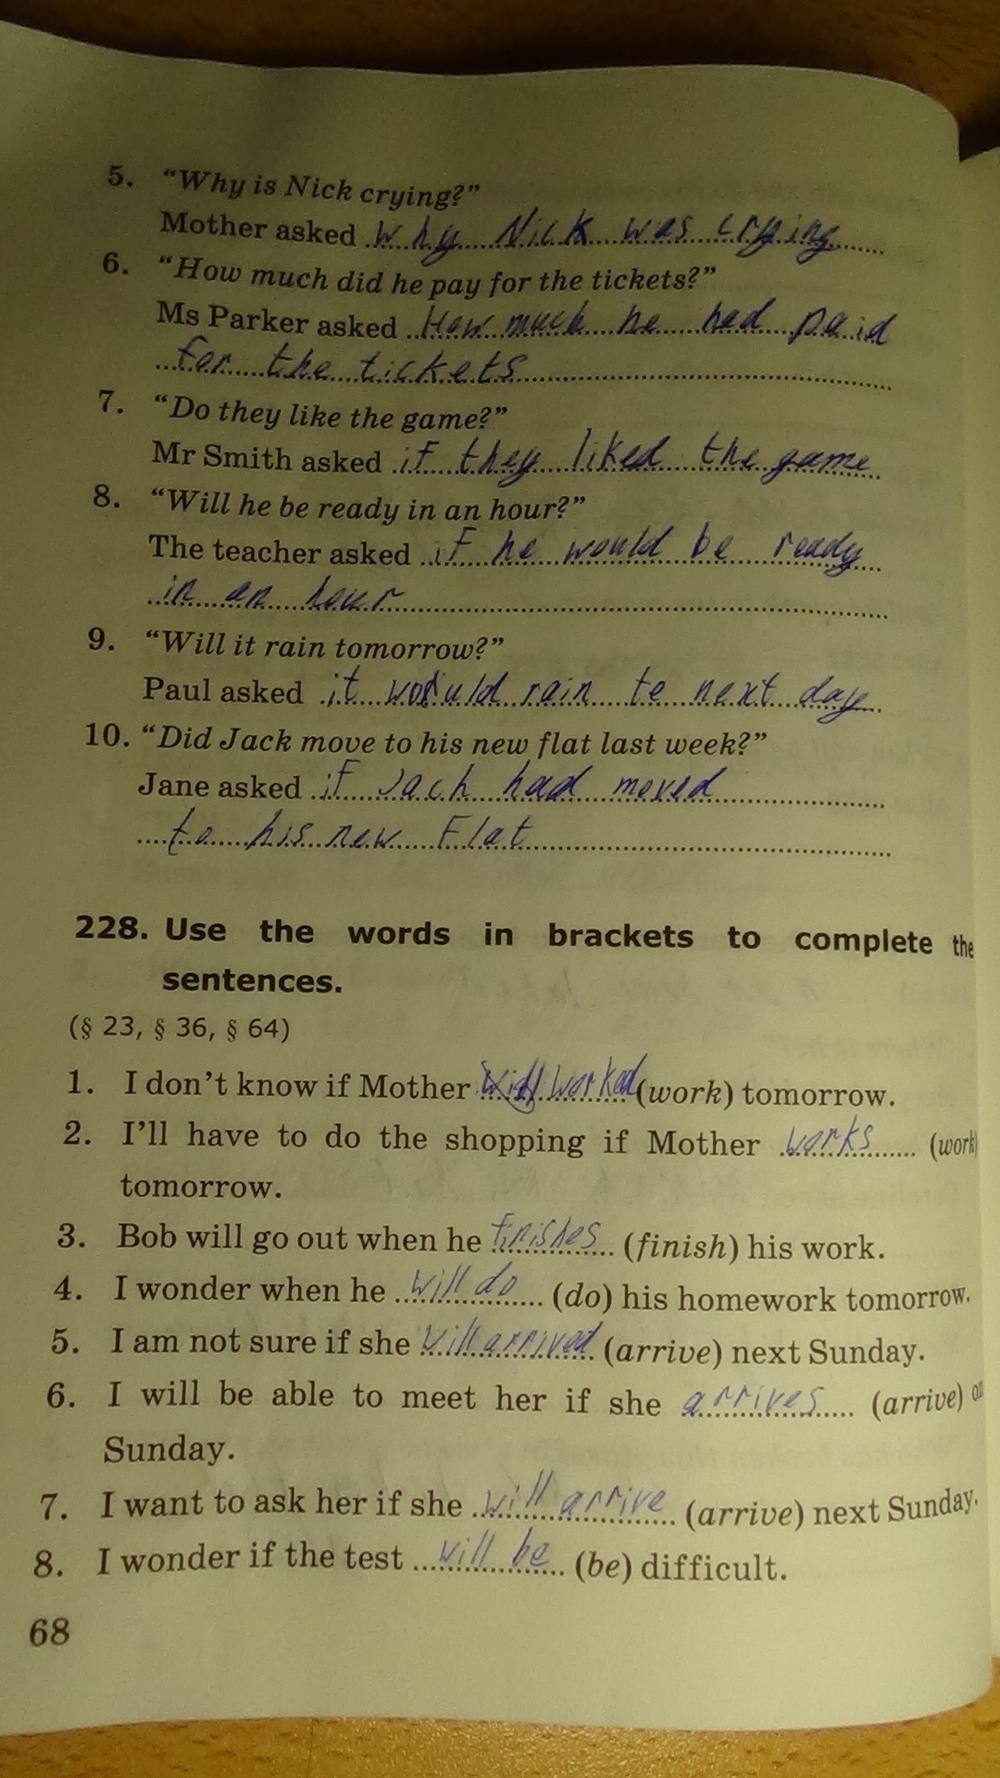 5. “Why is Nick crying?”
Mother asked why Nick was crying
6. “How much did he pay for the tickets?”
Ms Parker asked How much he had paid
for the tickets
7. “Do they like the game?”
Mr Smith asked if they liked the game
8. “Will he be ready in an hour?”
The teacher asked if he would be ready
in an hour
9. “Will it rain tomorrow?”
Paul asked it would rain te next day
10. “Did Jack move to his new flat last week?”
Jane asked if Jach had moved
to his new Flat
228. Use the words in brackets to complete the
sentences.
(§ 23, § 36, § 64)
1. I don’t know if Mother worked (work) tomorrow.
2. I’ll have to do the shopping if Mother works (work)
tomorrow.
3. Bob will go out when he finishes (finish) his work.
4. I wonder when he will do (do) his homework tomorrow.
5. I am not sure if she will arrived (arrive) next Sunday.
6. I will be able to meet her if she arrives (arrive) on
Sunday.
7. I want to ask her if she will arrive (arrive) next Sunday.
8. I wonder if the test will be (be) difficult.
68